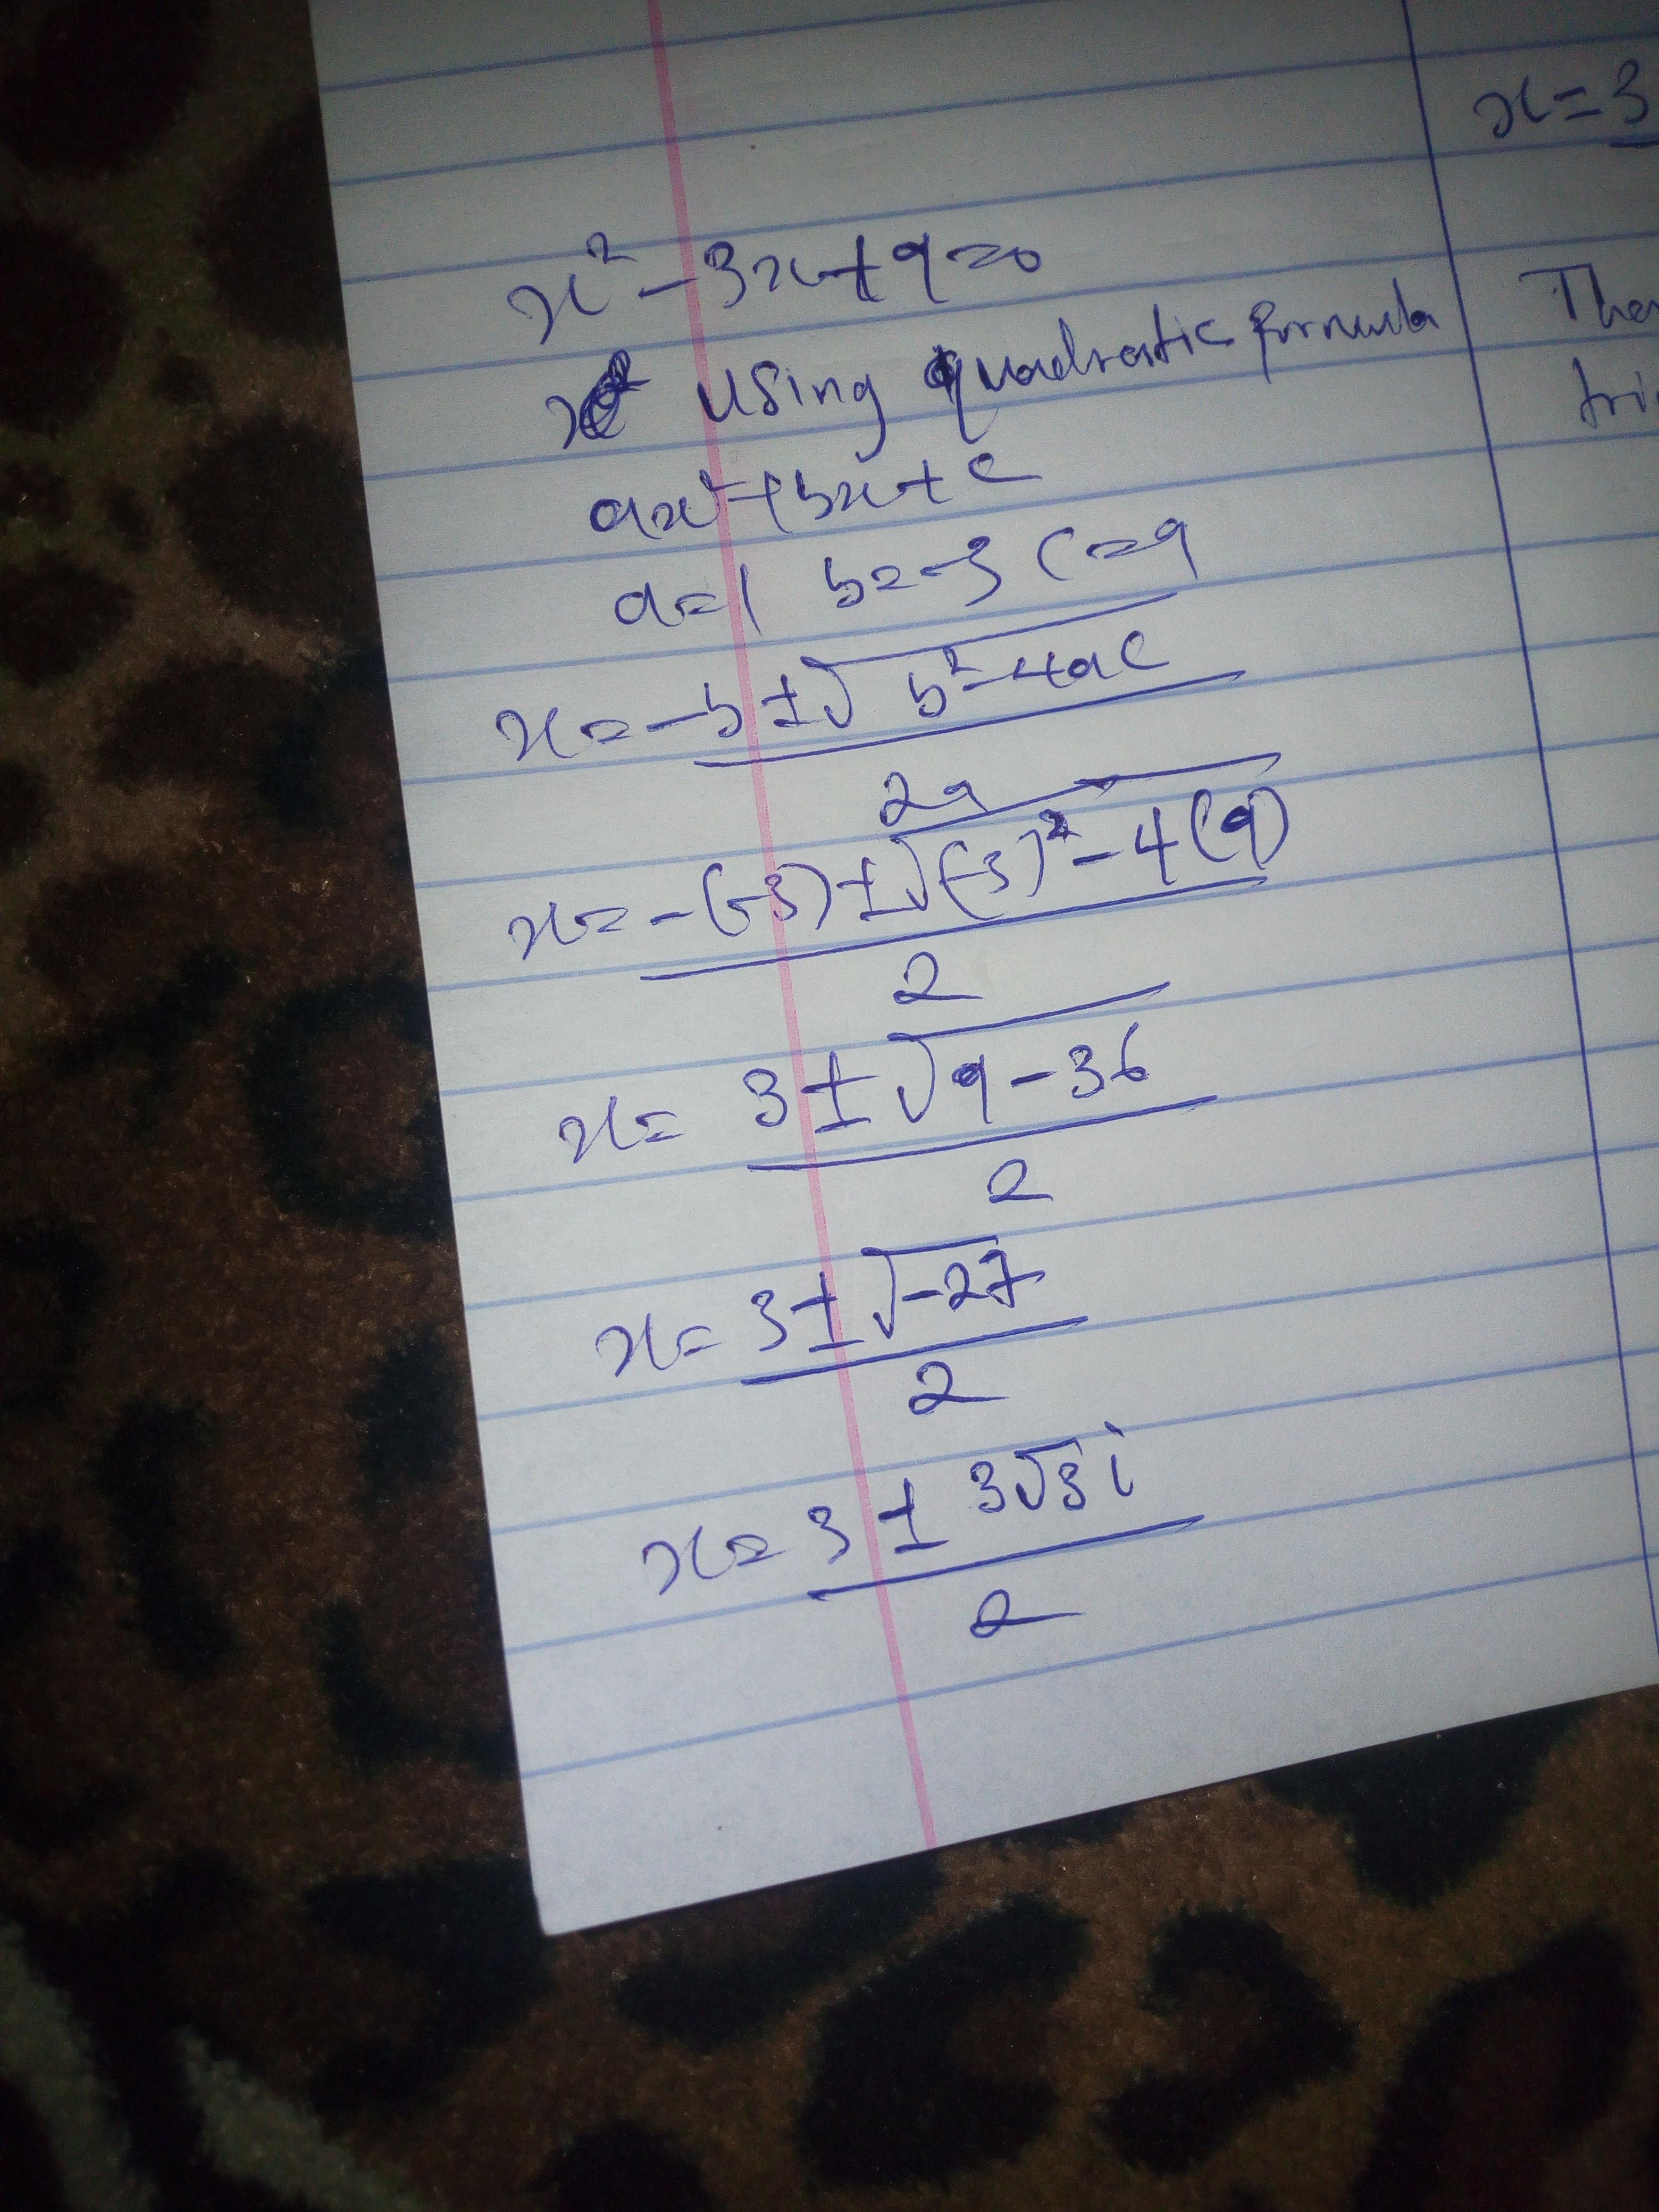 x² - 3x + 9 = 0
using quadratic formula
ax² + bx + c
a = 1 b = -3 c = 9
x = -b ± √b² - 4ac
2a
x = -(-3) ± √(-3)² - 4(9)
2
x = 3 ± √9 - 36
2
x = 3 ± √-27
2
x = 3 ± 3√3 i
2
x = 3